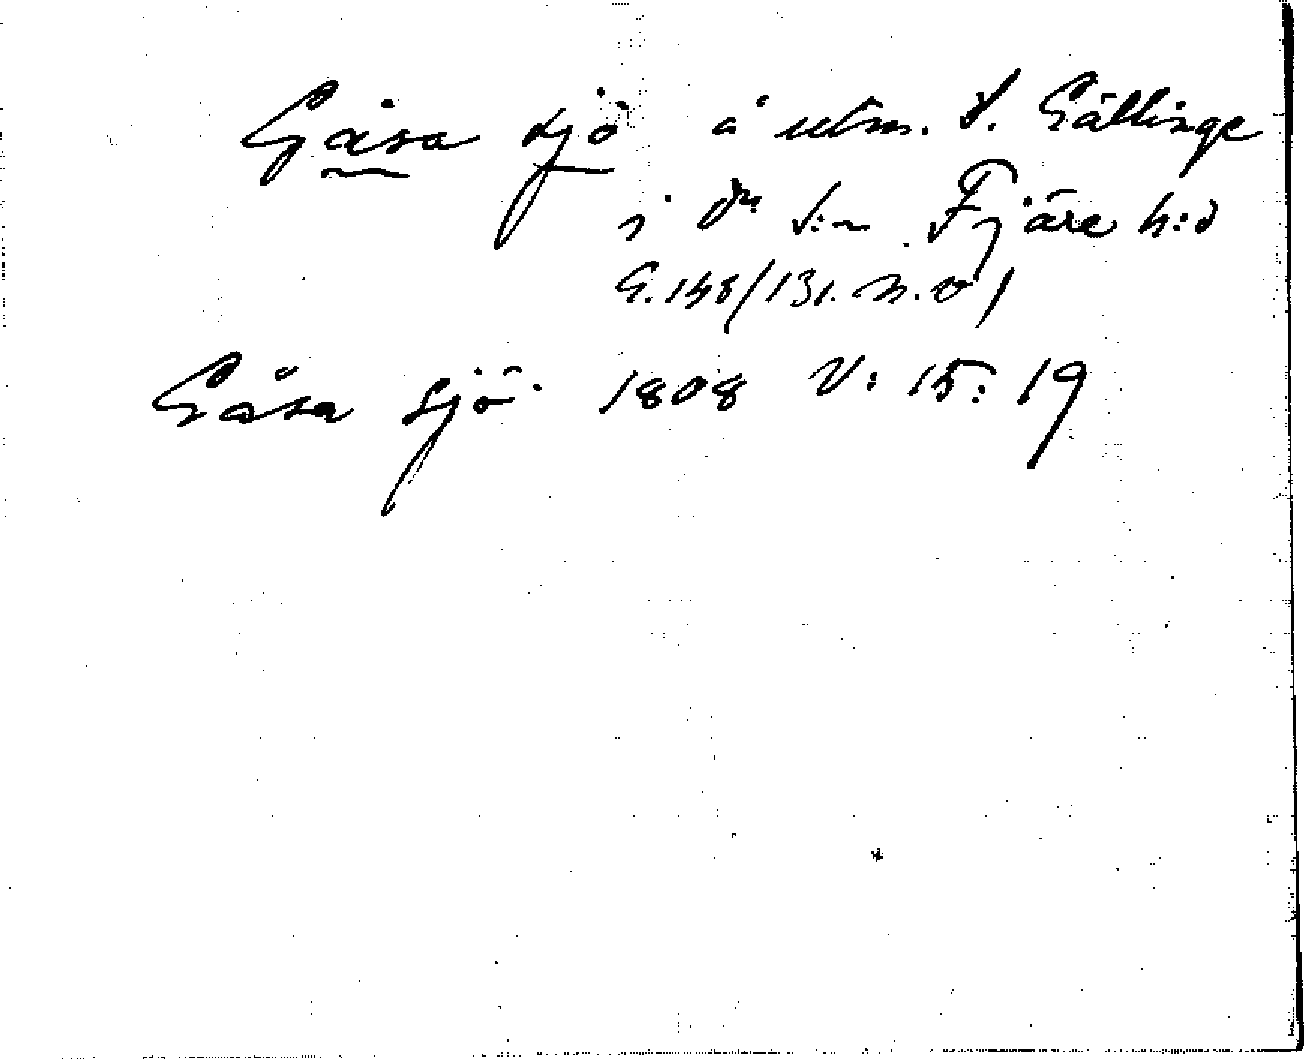 Gåsa sjö å utm. S. Gällinge
i dn s:n Fjäre h:d
G. 148/131. N.V.
Gåsa sjö 1808 V: 15: 19